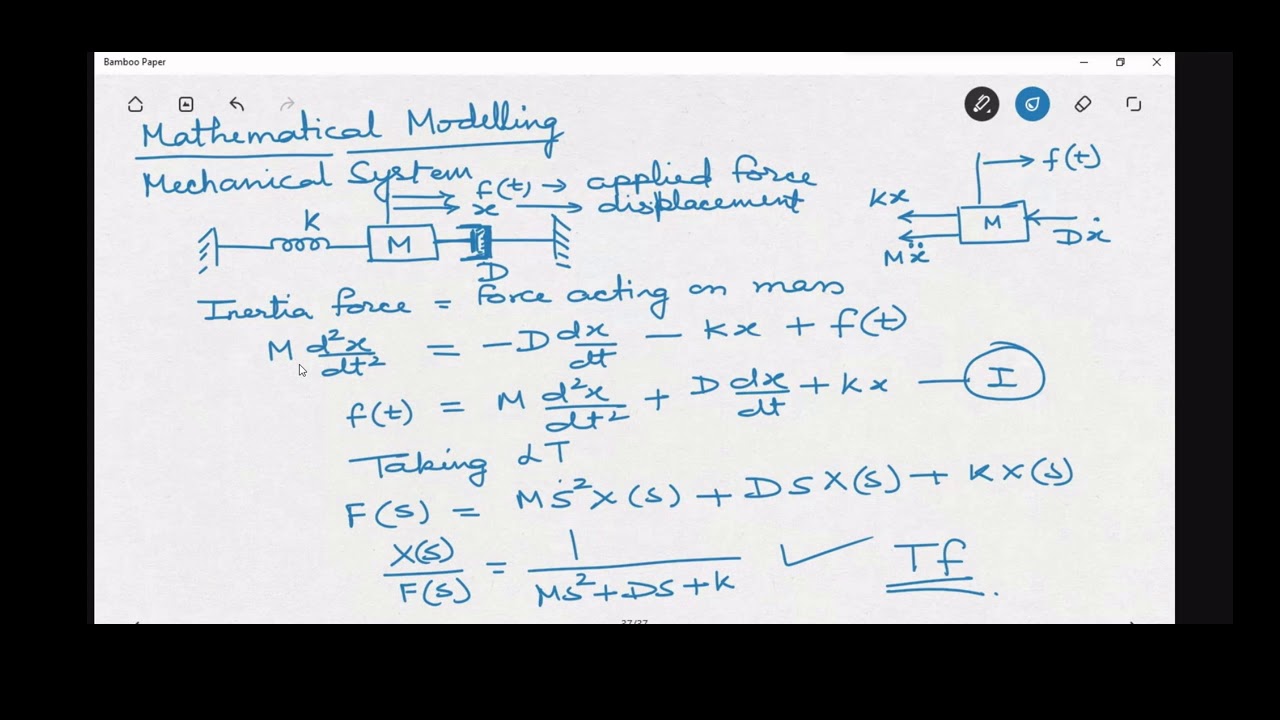 Bamboo Paper
Mathematical Modelling
Mechanical System
f(t) → applied force
x → displacement
K
M
D
f(t)
Kx
M
Dẋ
Mẍ
Inertia force = force acting on mass
M d²x/dt² = -D dx/dt - Kx + f(t)
f(t) = M d²x/dt² + D dx/dt + Kx — I
Taking LT
F(s) = Ms²X(s) + DSX(s) + KX(s)
X(s)/F(s) = 1/(Ms²+DS+K) ✓ Tf
37/37